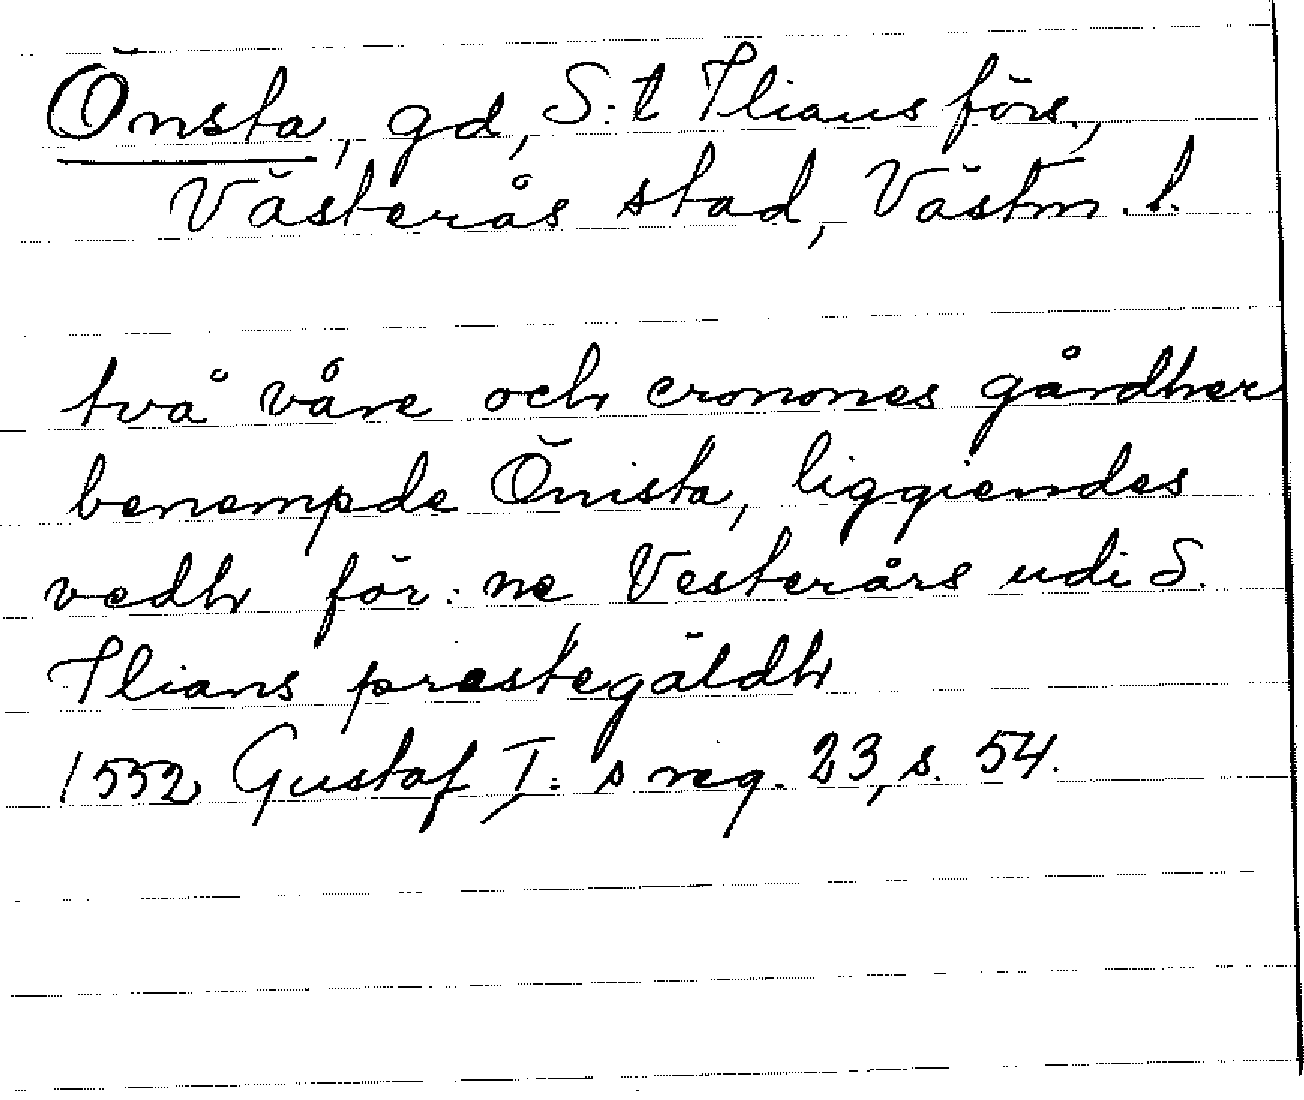 Önsta, gd, S:t Ilians förs.,
Västerås stad, Västm. l.
två våre och cronones gårdher
benempde Önista, liggiendes
vedh för:ne Vesterårs udi S.
Ilians prestegäldh
1552 Gustaf I:s reg. 23, s. 54.